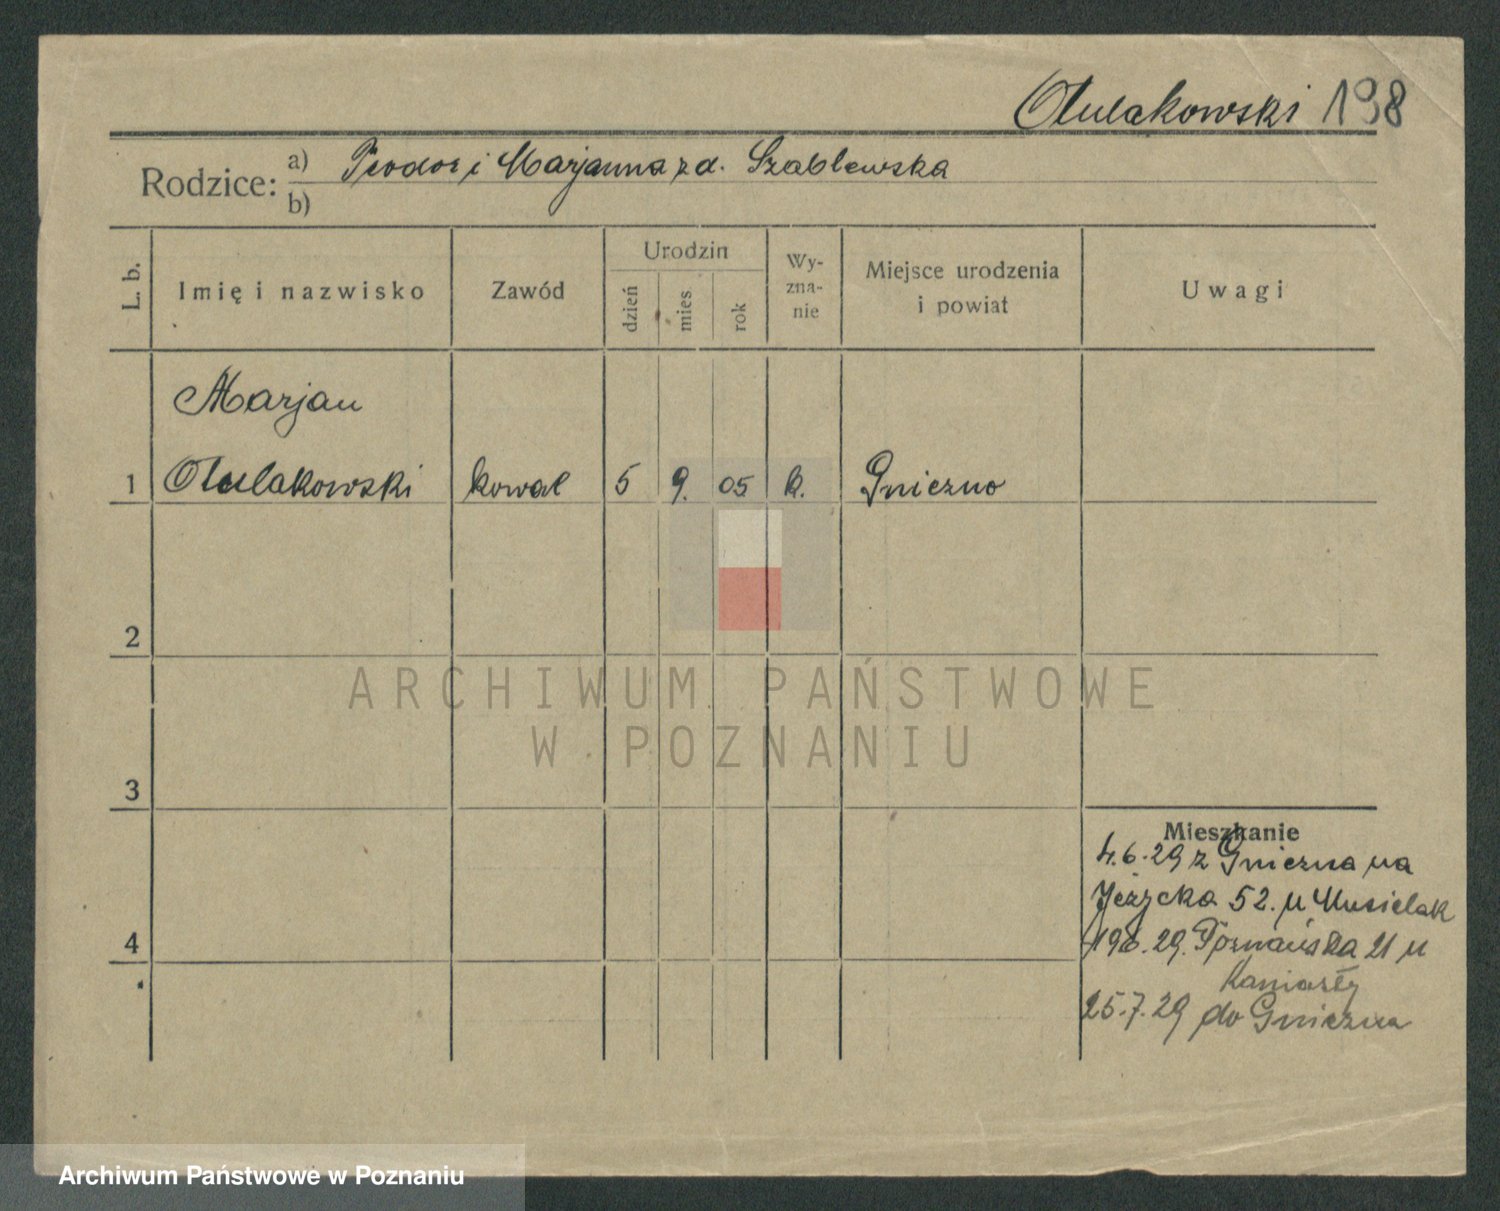 Otulakowski 198
Rodzice: a) Teodor i Marjanna z d. Szablewska
b)
L. b.
Imię i nazwisko
Zawód
Urodzin
dzień
mies.
rok
Wy-
zna-
nie
Miejsce urodzenia
i powiat
Uwagi
Marjan
1 Otulakowski kowal 5 9. 05 k. Gniezno
2
ARCHIWUM PAŃSTWOWE
W POZNANIU
3
Mieszkanie
4.6.29 z Gniezna na
Jeżycka 52. u Musielak
4
19.6.29. Poznańska 21 u
25.7.29 do Gniezna
Archiwum Państwowe w Poznaniu